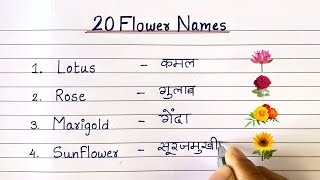 20 Flower Names
1. Lotus - कमल
2. Rose - गुलाब
3. Marigold - गेंदा
4. Sunflower - सूरजमुखी